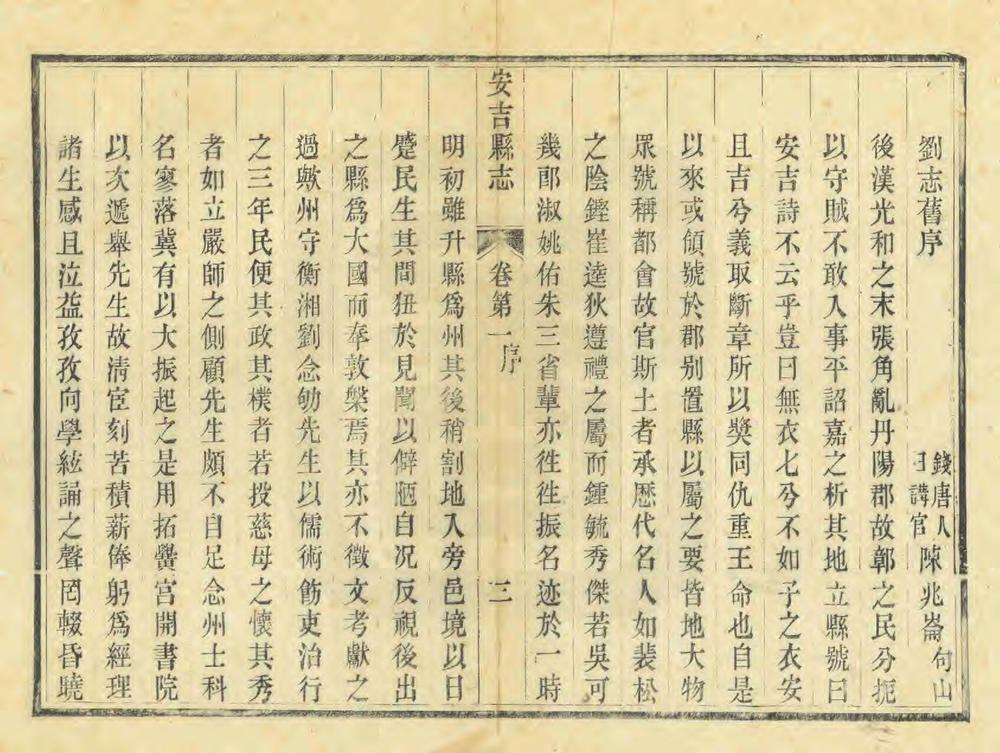 劉志舊序
錢唐人日講官陳兆崙句山
後漢光和之末張角亂丹陽郡故鄣之民分扼
以守賊不敢入事平詔嘉之析其地立縣號曰
安吉詩不云乎豈曰無衣七兮不如子之衣安
且吉兮義取斷章所以獎同仇重王命也自是
以來或領號於郡别置縣以屬之要皆地大物
眾號稱都會故官斯土者承歷代名人如裴松
之陰鏗崔逵狄遵禮之屬而鍾毓秀傑若吳可
幾郎淑姚佑朱三省輩亦徃徃振名迹於一時
安吉縣志 卷第一 序 三
明初雖升縣爲州其後稍割地入旁邑境以日
蹙民生其間狃於見聞以僻陋自况反視後出
之縣爲大國而奉敦槃焉其亦不徵文考獻之
過歟州守衡湘劉念劬先生以儒術飭吏治行
之三年民便其政其樸者若投慈母之懷其秀
者如立嚴師之側顧先生頗不自足念州士科
名寥落冀有以大振起之是用拓黌宫開書院
以次遞舉先生故清宦刻苦積薪俸躬爲經理
諸生感且泣益孜孜向學絃誦之聲罔輟昏曉